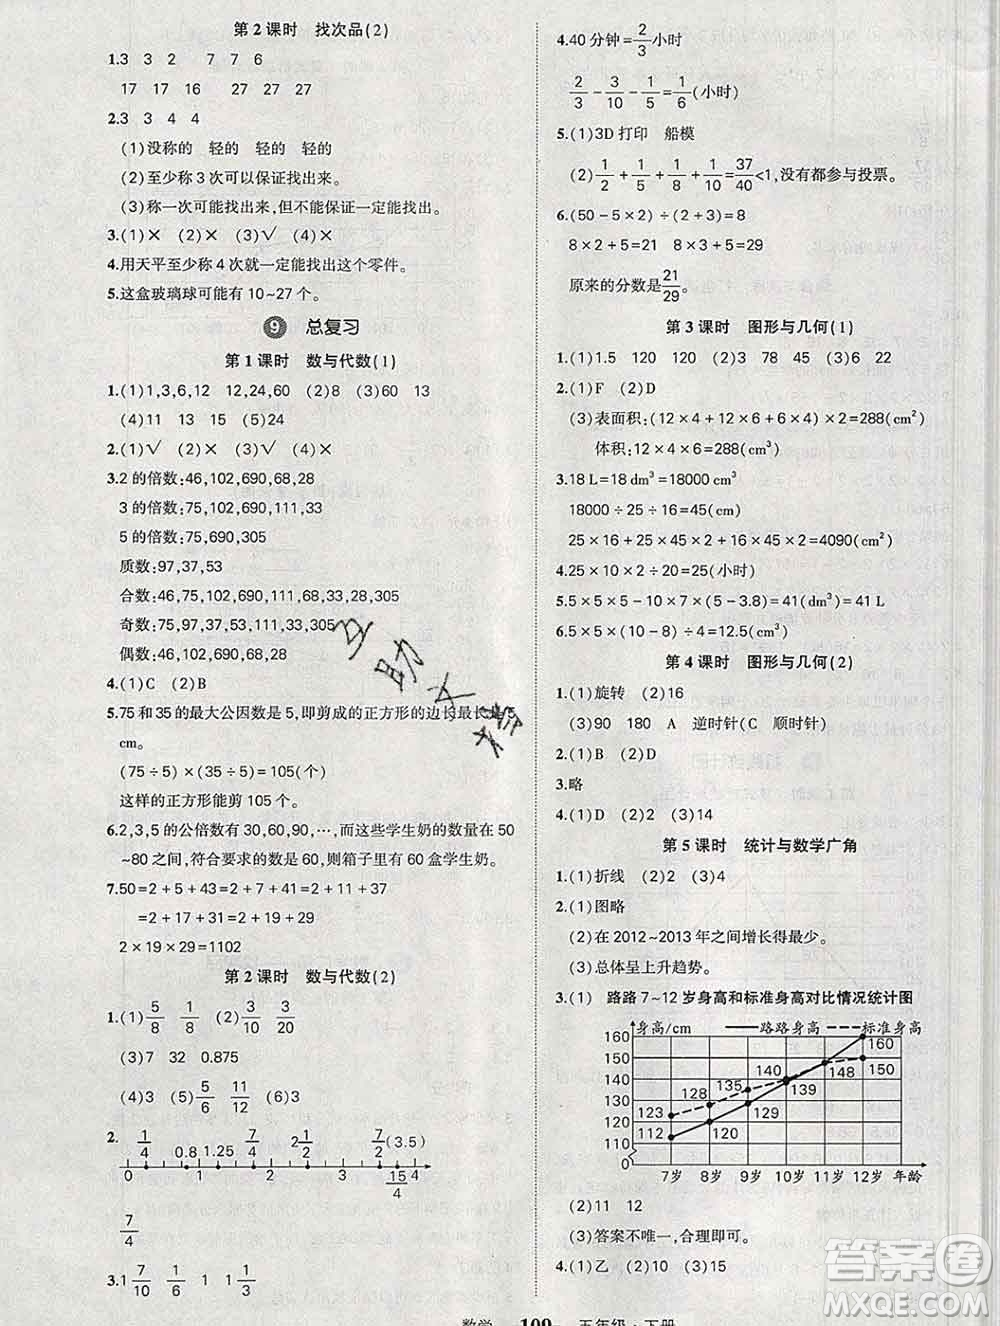 第2课时 找次品(2)
1.3 3 2 7 7 6
17 17 16 27 27 26
2.3 3 4 4
(1)没称的 轻的 轻的 轻的
(2)至少称3次可以保证找出来。
(3)称一次可能找出来,但不能保证一定能找出。
3.(1)× (2)× (3)√ (4)×
4.用天平至少称4次就一定能找出这个零件。
5.这盒玻璃球可能有10~27个。
9 总复习
第1课时 数与代数(1)
1.(1)1,3,6,12 12,24,60 (2)8 (3)60 13
(4)11 13 15 (5)24
2.(1)√ (2)× (3)√ (4)×
3.2的倍数:46,102,690,68,28
3的倍数:75,102,690,111,33
5的倍数:75,690,305
质数:97,37,53
合数:46,75,102,690,111,33,68,28,305
奇数:75,97,37,111,53,33,305
偶数:46,102,690,68,28
4.(1)C (2)B
5.75和35的最大公因数是5,即剪成的正方形的边长最长是5
cm。
(75÷5)×(35÷5)=105(个)
这样的正方形能剪105个。
6.2,3,5的公倍数有30,60,90,…,而这些学生奶的数量在50
~80之间,符合要求的数是60,则箱子里面有60盒学生奶。
7.50=2+5+43=2+7+41=2+11+37
=2+17+31=2+19+29
2×19×29=1102
第2课时 数与代数(2)
1.(1)5/8 1/8 (2)3/10 3/20
(3)7 32 0.875
(4)3 (5)5/6 11/12 (6)3
2. 1/4 0.8 1.25 7/4 2 1/2 7/2(3.5)
0 1 2 3 15/4 4
7/4
3.1 7/10 1/8 1 1 1/9
4.40分钟=2/3小时
2/3-3/10-1/5=1/6(小时)
5.(1)3D打印 船模
(2)1/2+1/5+1/8+1/10=37/40<1,没有都参与投票。
6.(50-5×2)÷(2+3)=8
8×2+5=21 8×3+5=29
原来的分数是21/29。
第3课时 图形与几何(1)
1.(1)1.5 120 120 (2)3 78 45 (3)6 22
2.(1)F (2)D
(3)表面积:(12×4+12×6+6×4)×2=288(cm²)
体积:12×4×6=288(cm³)
3.18 L=18 dm³=18000 cm³
18000÷25÷16=45(cm)
25×16+25×45×2+16×45×2=4090(cm²)
4.25×10×2÷20=25(小时)
5.5×5×10-7×7×(5-3.8)=41(dm³)=41 L
6.5×5×(10-8)÷4=12.5(cm³)
第4课时 图形与几何(2)
1.(1)旋转 (2)16
(3)90 180 A 逆时针(C 顺时针)
2.(1)B (2)D
3.略
4.(1)D (2)2 (3)14
第5课时 统计与数学广角
1.(1)折线 (2)2 (3)4
2.(1)图略
(2)在2012~2013年之间增长得最少。
(3)总体呈上升趋势。
3.(1) 路路7~12岁身高和标准身高对比情况统计图
身高/cm 路路身高 标准身高
160 150 140 130 120 110 0
123 128 135 140 148 150
112 120 129 139 160
7岁 8岁 9岁 10岁 11岁 12岁 年龄
(2)11 12
(3)答案不唯一,合理即可。
4.(1)乙 (2)10 (3)15
数学 109 五年级·下册
互助文档
答案圈
MXQE.COM